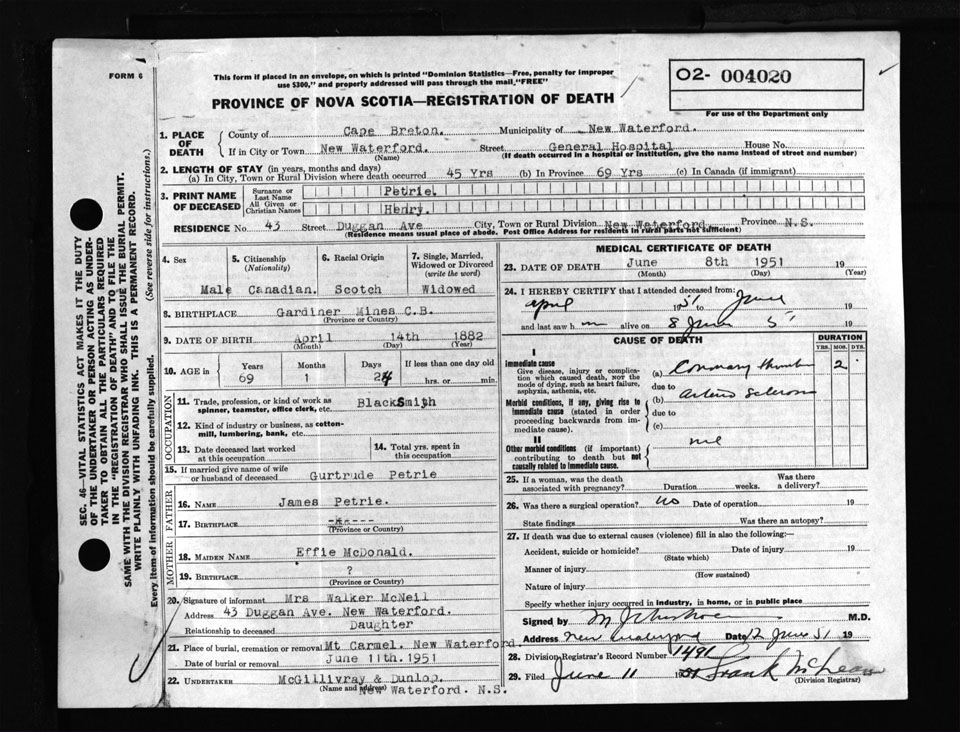 FORM 6
This form if placed in an envelope, on which is printed "Dominion Statistics—Free, penalty for improper
use $300," and properly addressed will pass through the mail "FREE"
O2- 004020
For use of the Department only
PROVINCE OF NOVA SCOTIA—REGISTRATION OF DEATH
SEC. 46—VITAL STATISTICS ACT MAKES IT THE DUTY
OF THE UNDERTAKER OR PERSON ACTING AS UNDER-
TAKER TO OBTAIN ALL THE PARTICULARS REQUIRED
IN THE "REGISTRATION OF DEATH" AND TO FILE THE
SAME WITH THE DIVISION REGISTRAR WHO SHALL ISSUE THE BURIAL PERMIT.
WRITE PLAINLY WITH UNFADING INK. THIS IS A PERMANENT RECORD.
Every item of information should be carefully supplied. (See reverse side for instructions.)
1. PLACE OF DEATH
County of Cape Breton. Municipality of New Waterford.
If in City or Town New Waterford. Street General Hospital House No.
(Name) (If death occurred in a hospital or institution, give the name instead of street and number)
2. LENGTH OF STAY (in years, months and days)
(a) In City, Town or Rural Division where death occurred 45 Yrs (b) In Province 69 Yrs (c) In Canada (if immigrant)
3. PRINT NAME OF DECEASED
Surname or Last Name Petrie.
All Given or Christian Names Henry.
RESIDENCE No. 43 Street Duggan Ave City, Town or Rural Division New Waterford Province N.S.
(Residence means usual place of abode. Post Office Address for residents in rural parts not sufficient)
4. Sex 5. Citizenship (Nationality) 6. Racial Origin 7. Single, Married, Widowed or Divorced (write the word)
Male Canadian. Scotch Widowed
8. BIRTHPLACE Gardiner Mines C.B.
(Province or Country)
9. DATE OF BIRTH April 14th 1882
(Month) (Day) (Year)
10. AGE in Years Months Days If less than one day old
69 1 24 hrs. or min.
OCCUPATION
11. Trade, profession, or kind of work as spinner, teamster, office clerk, etc. BlackSmith
12. Kind of industry or business, as cotton-mill, lumbering, bank, etc.
13. Date deceased last worked at this occupation 14. Total yrs. spent in this occupation
15. If married give name of wife or husband of deceased Gurtrude Petrie
FATHER
16. NAME James Petrie.
17. BIRTHPLACE
(Province or Country)
MOTHER
18. MAIDEN NAME Effie McDonald.
19. BIRTHPLACE ?
(Province or Country)
20. Signature of informant Mrs Walker McNeil
Address 43 Duggan Ave. New Waterford.
Relationship to deceased Daughter
21. Place of burial, cremation or removal Mt Carmel. New Waterford.
Date of burial or removal June 11th. 1951
22. UNDERTAKER McGillivray & Dunlop.
(Name and Address)
New Waterford. N.S.
MEDICAL CERTIFICATE OF DEATH
23. DATE OF DEATH June 8th 1951 19
(Month) (Day) (Year)
24. I HEREBY CERTIFY that I attended deceased from:
April 1951 June 19
and last saw h im alive on 8 June 51 19
CAUSE OF DEATH DURATION
YRS. MOS. DYS.
I
Immediate cause
Give disease, injury or complication which caused death, NOT the mode of dying, such as heart failure, asphyxia, asthenia, etc.
(a) Coronary 2
due to
Morbid conditions, if any, giving rise to immediate cause (stated in order proceeding backwards from immediate cause).
(b) Arterio Sclerosis
due to
(c)
II
Other morbid conditions (if important) contributing to death but not causally related to immediate cause.
nil
25. If a woman, was the death associated with pregnancy? Duration weeks. Was there a delivery?
26. Was there a surgical operation? no Date of operation 19
State findings Was there an autopsy?
27. If death was due to external causes (violence) fill in also the following:—
Accident, suicide or homicide? Date of injury 19
(State which)
Manner of injury
(How sustained)
Nature of injury
Specify whether injury occurred in industry, in home, or in public place
Signed by M.D.
Address New Waterford Date 12 June 51 19
28. Division Registrar's Record Number 1491
29. Filed June 11 1951 Frank McLean
(Division Registrar)